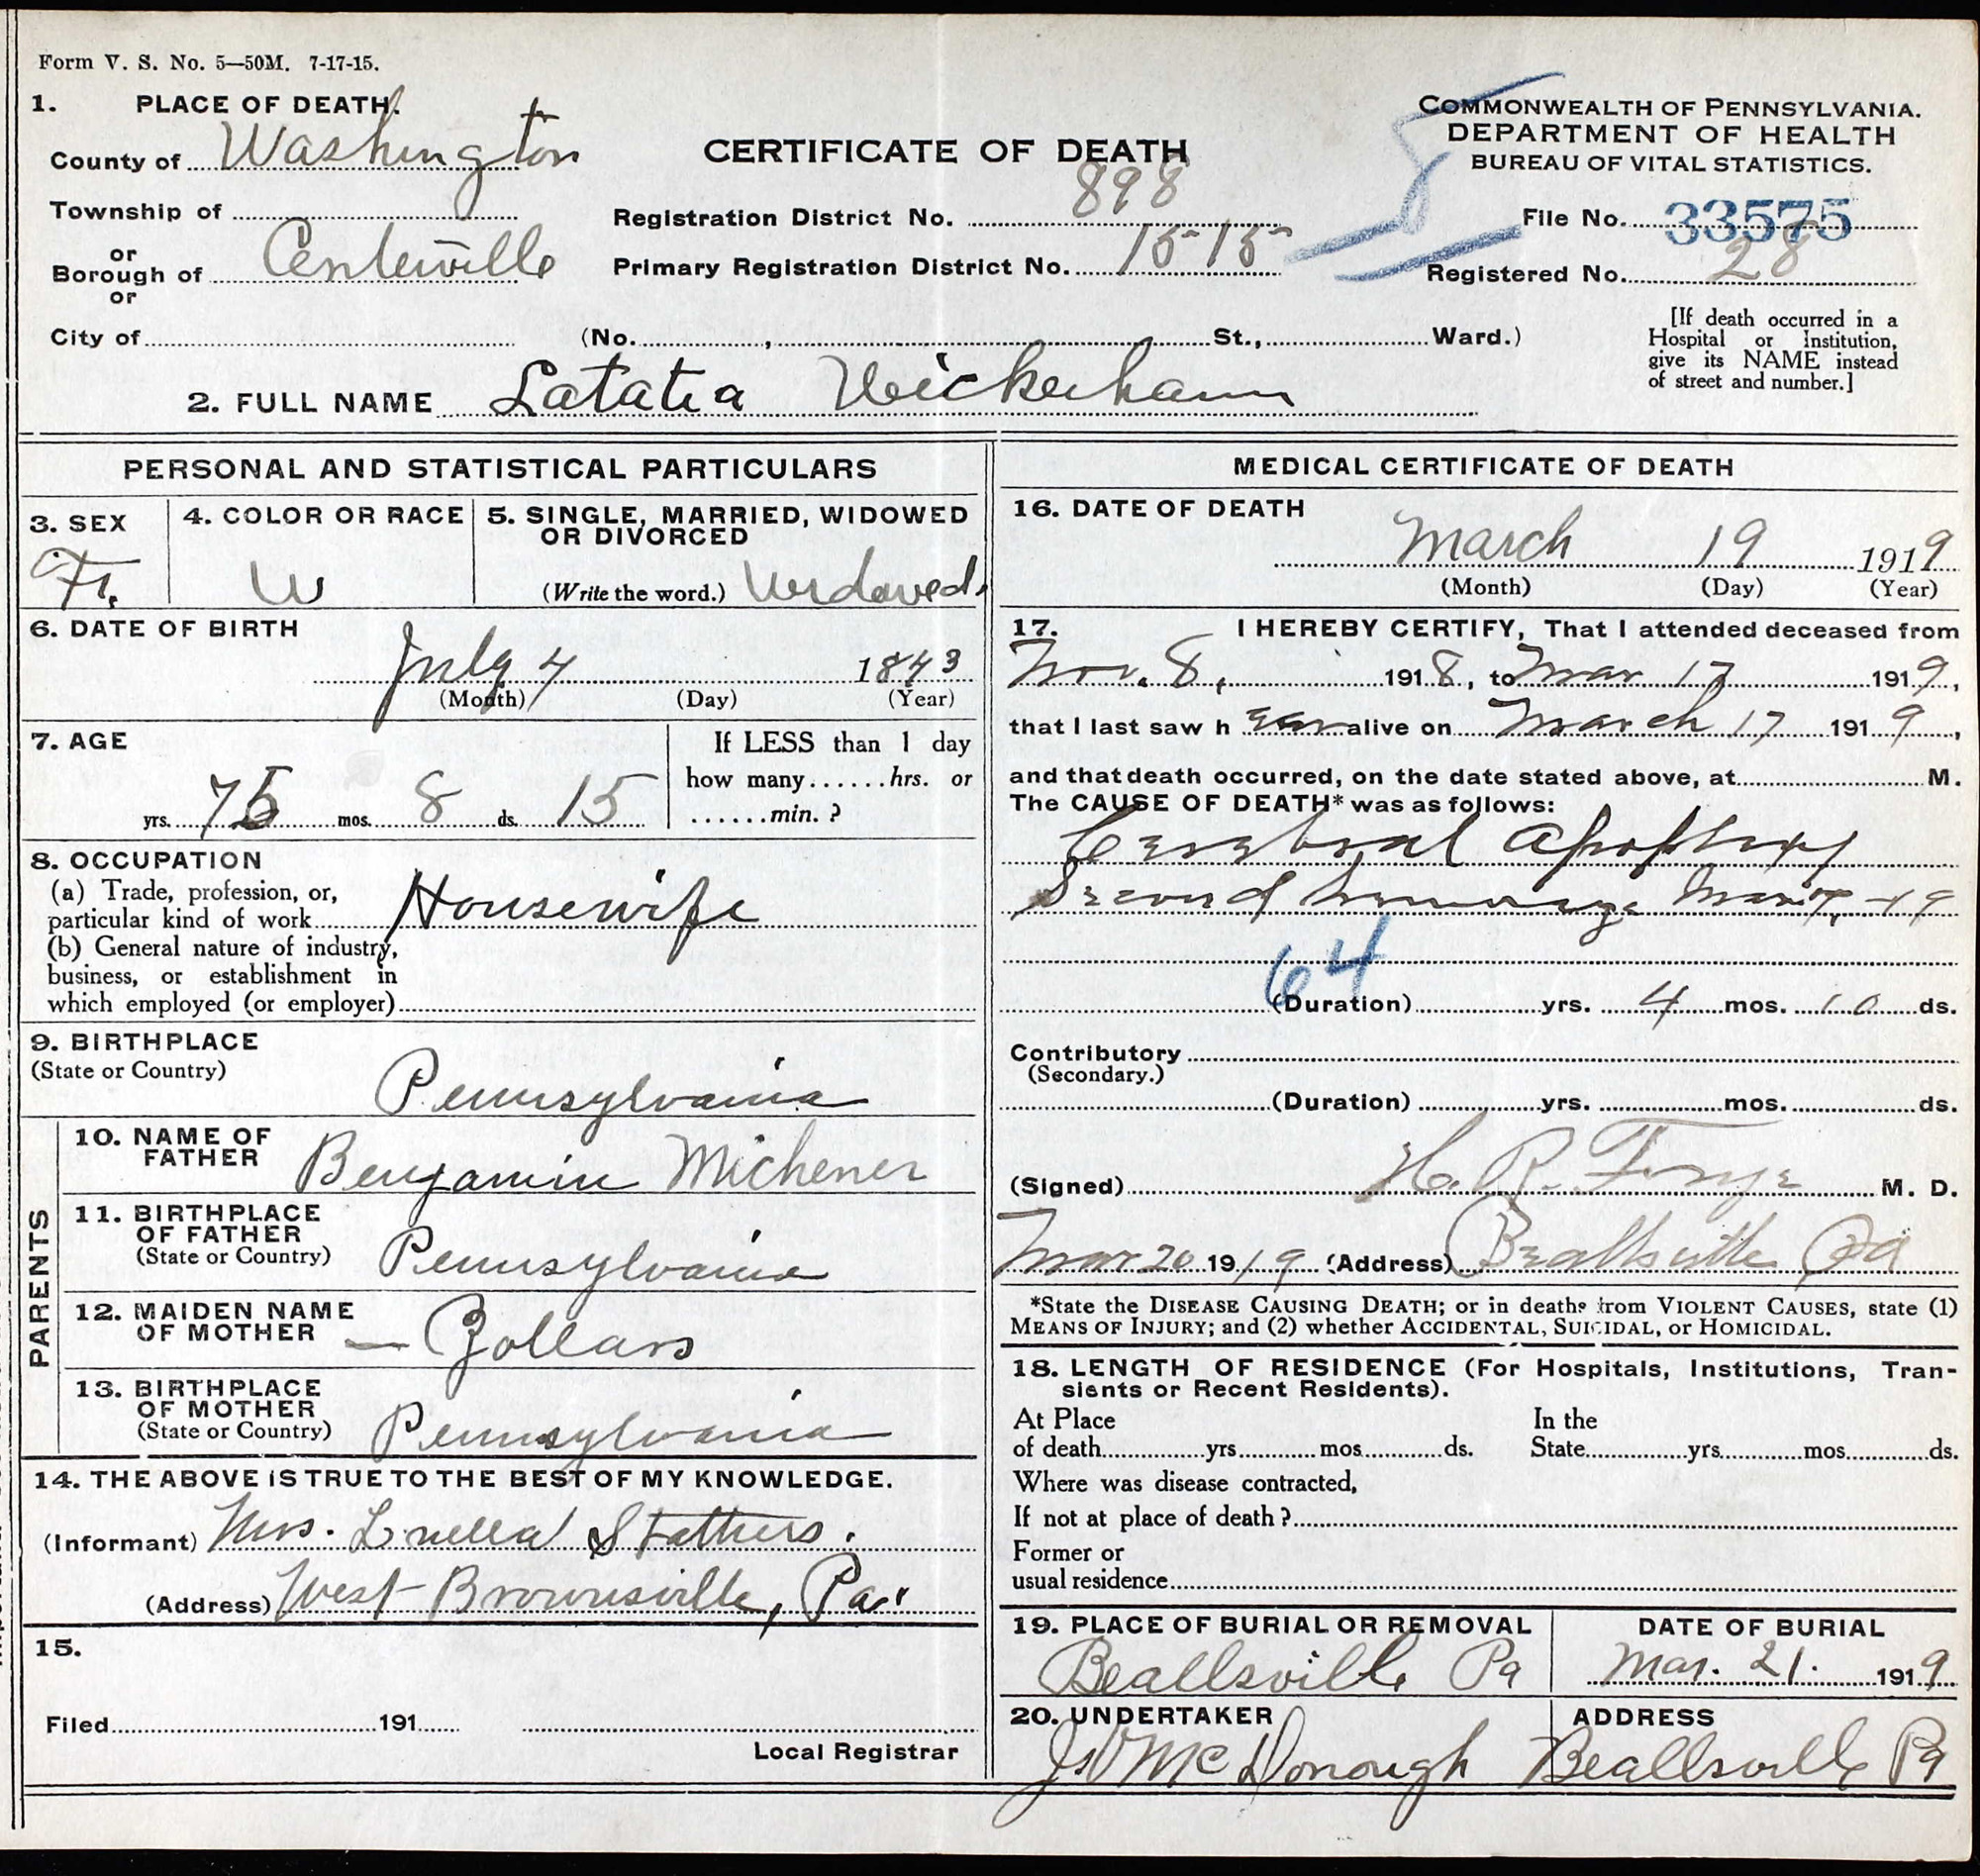 Form V. S. No. 5—50M. 7-17-15.
1. PLACE OF DEATH.
County of Washington
Township of
or
Borough of Centerville
or
City of (No. , St., Ward.)
CERTIFICATE OF DEATH
Registration District No. 898
Primary Registration District No. 15-15-
COMMONWEALTH OF PENNSYLVANIA.
DEPARTMENT OF HEALTH
BUREAU OF VITAL STATISTICS.
File No. 33575
Registered No. 28
[If death occurred in a
Hospital or Institution,
give its NAME instead
of street and number.]
2. FULL NAME Latatia Wickerham
PERSONAL AND STATISTICAL PARTICULARS
3. SEX
4. COLOR OR RACE
W
5. SINGLE, MARRIED, WIDOWED
OR DIVORCED
(Write the word.) Widowed.
6. DATE OF BIRTH
July 4 1843
(Month) (Day) (Year)
7. AGE
yrs. 75 mos. 8 ds. 15
If LESS than 1 day
how many......hrs. or
......min. ?
8. OCCUPATION
(a) Trade, profession, or,
particular kind of work Housewife
(b) General nature of industry,
business, or establishment in
which employed (or employer)
9. BIRTHPLACE
(State or Country)
Pennsylvania
PARENTS
10. NAME OF
FATHER
Benjamin Michener
11. BIRTHPLACE
OF FATHER
(State or Country) Pennsylvania
12. MAIDEN NAME
OF MOTHER — Zollars
13. BIRTHPLACE
OF MOTHER
(State or Country) Pennsylvania
14. THE ABOVE IS TRUE TO THE BEST OF MY KNOWLEDGE.
(Informant) Mrs. Luella Stathers.
(Address) West Brownsville, Pa.
15.
Filed 191
Local Registrar
MEDICAL CERTIFICATE OF DEATH
16. DATE OF DEATH
March 19 1919
(Month) (Day) (Year)
17. I HEREBY CERTIFY, That I attended deceased from
Nov. 8, 1918, to Mar 17 1919,
that I last saw h er alive on March 17 1919,
and that death occurred, on the date stated above, at M.
The CAUSE OF DEATH* was as follows:
Cerebral Apoplexy
Second hemorrhage Mar 17, -19
64
(Duration) yrs. 4 mos. 10 ds.
Contributory
(Secondary.)
(Duration) yrs. mos. ds.
(Signed) H. R. M. D.
Mar 20 1919 (Address) Beallsville Pa
*State the DISEASE CAUSING DEATH; or in deaths from VIOLENT CAUSES, state (1)
MEANS OF INJURY; and (2) whether ACCIDENTAL, SUICIDAL, or HOMICIDAL.
18. LENGTH OF RESIDENCE (For Hospitals, Institutions, Tran-
sients or Recent Residents).
At Place In the
of death yrs. mos. ds. State yrs. mos. ds.
Where was disease contracted,
If not at place of death ?
Former or
usual residence
19. PLACE OF BURIAL OR REMOVAL
Beallsville Pa
DATE OF BURIAL
Mar. 21. 1919
20. UNDERTAKER
McDonough
ADDRESS
Beallsville Pa